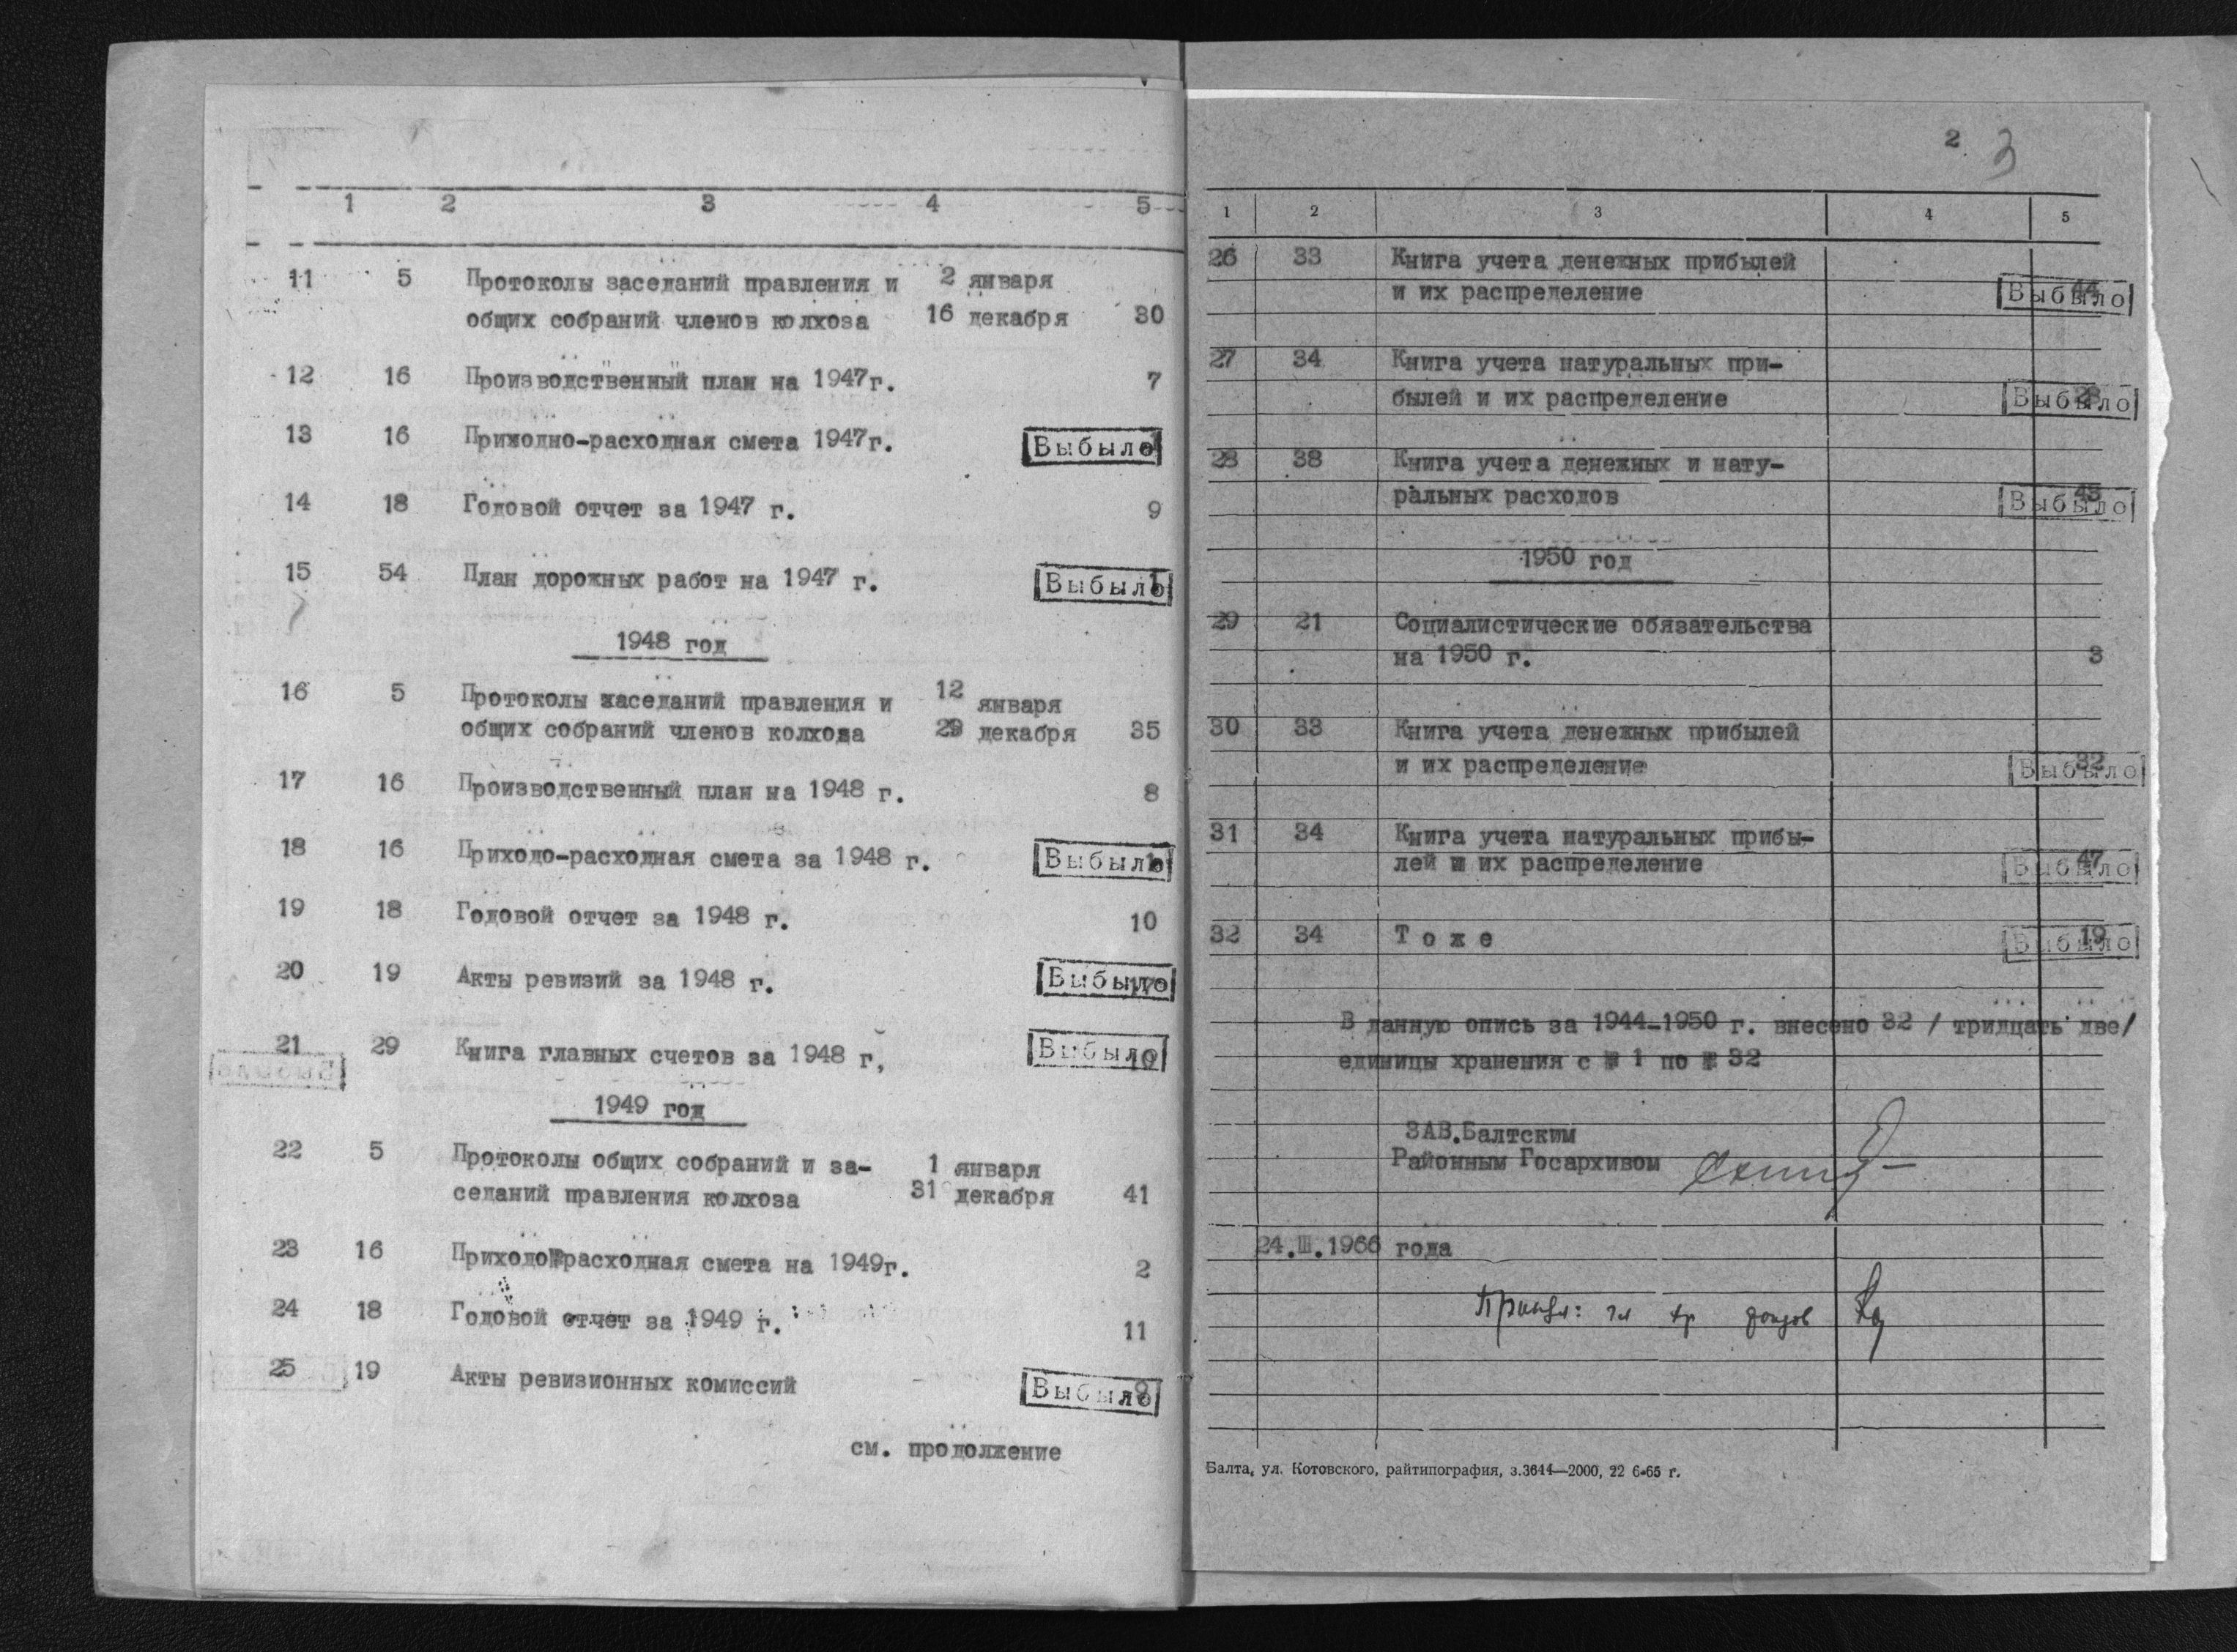 1 2 3 4 5
11 5 Протоколы заседаний правления и 2 января
общих собраний членов колхоза 16 декабря 30
12 16 Производственный план на 1947г. 7
13 16 Приходно-расходная смета 1947г. Выбыло
14 18 Годовой отчет за 1947 г. 9
15 54 План дорожных работ на 1947 г. Выбыло 1
1948 год
16 5 Протоколы заседаний правления и 12 января
общих собраний членов колхоза 29 декабря 35
17 16 Производственный план на 1948 г. 8
18 16 Приходо-расходная смета за 1948 г. Выбыло
19 18 Годовой отчет за 1948 г. 10
20 19 Акты ревизий за 1948 г. Выбыло
21 29 Книга главных счетов за 1948 г, Выбыло 10
Выбыло
1949 год
22 5 Протоколы общих собраний и за- 1 января
седаний правления колхоза 31 декабря 41
23 16 Приходо-расходная смета на 1949г. 2
24 18 Годовой отчет за 1949 г. 11
25 19 Акты ревизионных комиссий Выбыло
см. продолжение
2 3
1 2 3 4 5
26 33 Книга учета денежных прибылей
и их распределение Выбыло 44
27 34 Книга учета натуральных при-
былей и их распределение Выбыло 28
28 38 Книга учета денежных и нату-
ральных расходов Выбыло 45
1950 год
29 21 Социалистические обязательства
на 1950 г. 3
30 33 Книга учета денежных прибылей
и их распределение Выбыло 32
31 34 Книга учета натуральных прибы-
лей и их распределение Выбыло 47
32 34 Тоже Выбыло 19
В данную опись за 1944-1950 г. внесено 32 / тридцать две/
единицы хранения с № 1 по № 32
ЗАВ.Балтским
Районным Госархивом
24.III.1966 года
фондов
Балта, ул. Котовского, райтипография, з.3644—2000, 22 6-65 г.